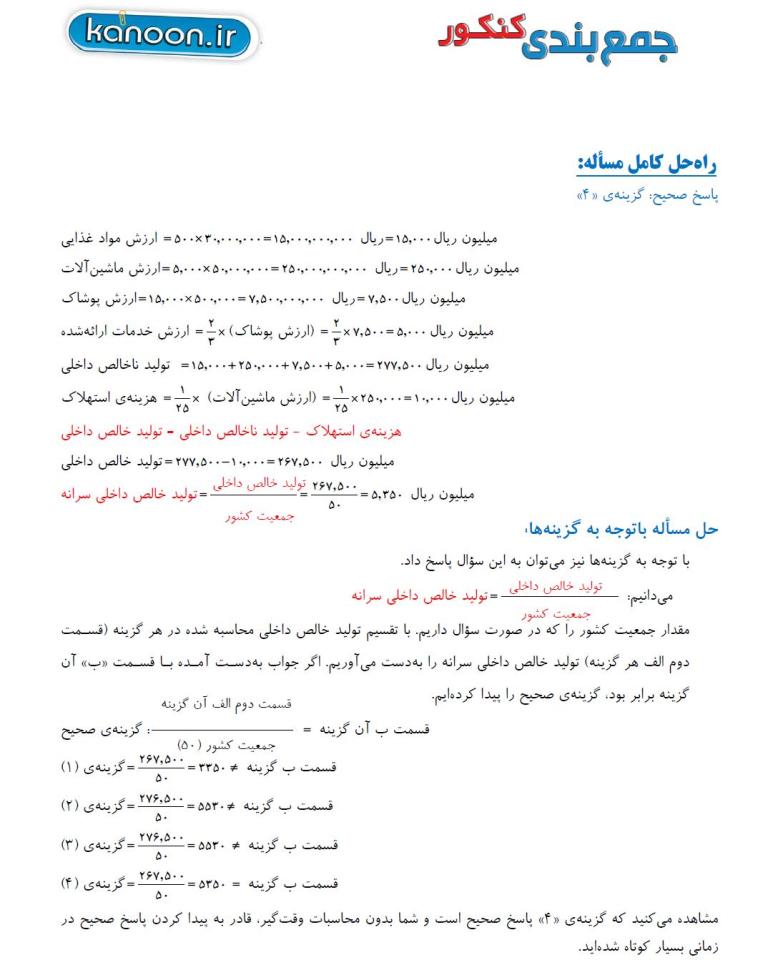 kanoon.ir
جمع بندی کنکور
راه‌حل کامل مسأله:
پاسخ صحیح: گزینه‌ی «۴»
میلیون ریال ۱۵,۰۰۰=ریال ۱۵,۰۰۰,۰۰۰,۰۰۰=۵۰۰×۳۰,۰۰۰,۰۰۰= ارزش مواد غذایی
میلیون ریال ۲۵۰,۰۰۰=ریال ۲۵۰,۰۰۰,۰۰۰,۰۰۰=۵,۰۰۰×۵۰,۰۰۰,۰۰۰=ارزش ماشین‌آلات
میلیون ریال ۷,۵۰۰=ریال ۷,۵۰۰,۰۰۰,۰۰۰=۱۵,۰۰۰×۵۰۰,۰۰۰=ارزش پوشاک
میلیون ریال ۵,۰۰۰=۷,۵۰۰×۲/۳= (ارزش پوشاک)×۲/۳= ارزش خدمات ارائه‌شده
میلیون ریال ۲۷۷,۵۰۰=۱۵,۰۰۰+۲۵۰,۰۰۰+۷,۵۰۰+۵,۰۰۰= تولید ناخالص داخلی
میلیون ریال ۱۰,۰۰۰=۲۵۰,۰۰۰×۱/۲۵= (ارزش ماشین‌آلات) ×۱/۲۵= هزینه‌ی استهلاک
هزینه‌ی استهلاک - تولید ناخالص داخلی = تولید خالص داخلی
میلیون ریال ۲۶۷,۵۰۰=۲۷۷,۵۰۰-۱۰,۰۰۰=تولید خالص داخلی
میلیون ریال ۵,۳۵۰=۲۶۷,۵۰۰/۵۰=تولید خالص داخلی/جمعیت کشور=تولید خالص داخلی سرانه
حل مسأله باتوجه به گزینه‌ها:
با توجه به گزینه‌ها نیز می‌توان به این سؤال پاسخ داد.
می‌دانیم: تولید خالص داخلی/جمعیت کشور=تولید خالص داخلی سرانه
مقدار جمعیت کشور را که در صورت سؤال داریم. با تقسیم تولید خالص داخلی محاسبه شده در هر گزینه (قسمت
دوم الف هر گزینه) تولید خالص داخلی سرانه را به‌دست می‌آوریم. اگر جواب به‌دست آمده با قسمت «ب» آن
گزینه برابر بود، گزینه‌ی صحیح را پیدا کرده‌ایم.
قسمت ب آن گزینه = قسمت دوم الف آن گزینه/جمعیت کشور (۵۰): گزینه‌ی صحیح
قسمت ب گزینه ≠ ۳۳۵۰=۲۶۷,۵۰۰/۵۰=گزینه‌ی (۱)
قسمت ب گزینه ≠ ۵۵۳۰=۲۷۶,۵۰۰/۵۰=گزینه‌ی (۲)
قسمت ب گزینه ≠ ۵۵۳۰=۲۷۶,۵۰۰/۵۰=گزینه‌ی (۳)
قسمت ب گزینه = ۵۳۵۰=۲۶۷,۵۰۰/۵۰=گزینه‌ی (۴)
مشاهده می‌کنید که گزینه‌ی «۴» پاسخ صحیح است و شما بدون محاسبات وقت‌گیر، قادر به پیدا کردن پاسخ صحیح در
زمانی بسیار کوتاه شده‌اید.